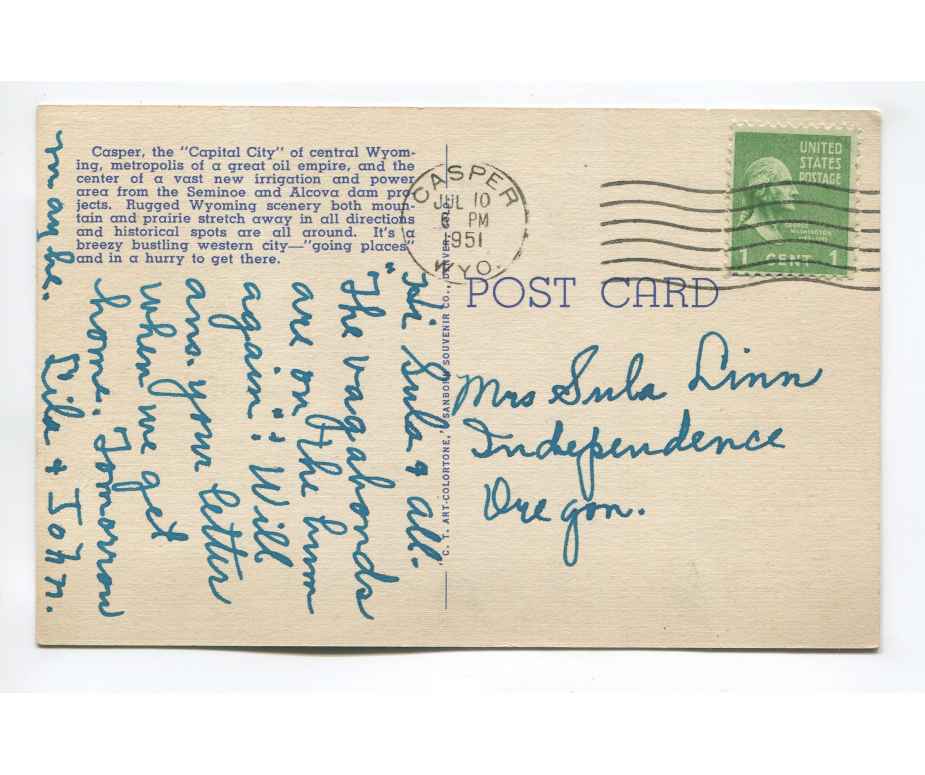 Casper, the "Capital City" of central Wyom-
ing, metropolis of a great oil empire, and the
center of a vast new irrigation and power
area from the Seminoe and Alcova dam pro
jects. Rugged Wyoming scenery both moun-
tain and prairie stretch away in all directions
and historical spots are all around. It's a
breezy bustling western city—"going places"
and in a hurry to get there.
CASPER
JUL 10
PM
1951
WYO.
UNITED
STATES
POSTAGE
GEORGE
WASHINGTON
1 CENT 1
POST CARD
C. T. ART-COLORTONE, SANBORN SOUVENIR CO., DENVER,
Mrs Sula Linn
Independence
Oregon.
Sula & all-
"The vagabonds
are on the hum
again". Will
ans. your letter
when we get
home. Tomorrow
maybe. Lila & John.